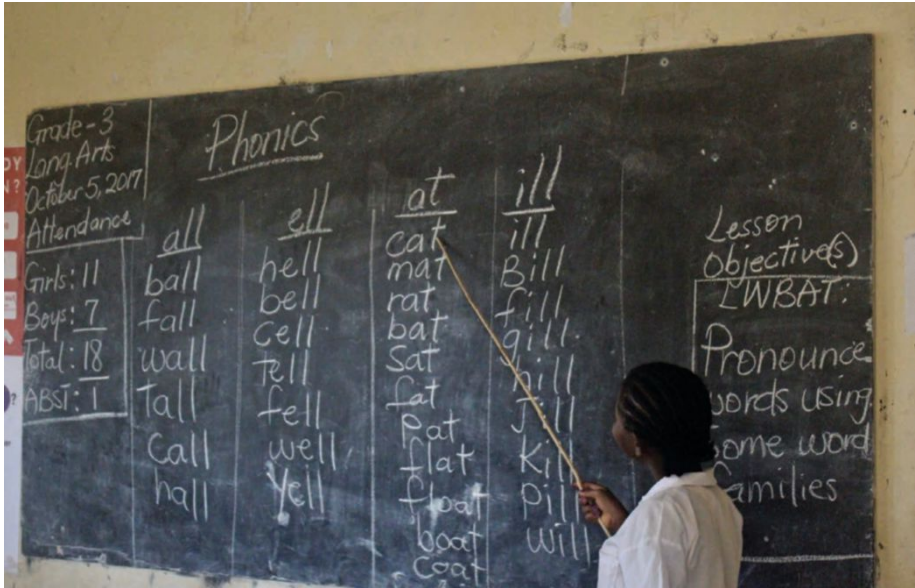 Grade-3
Lang. Arts
October 5, 2017
Attendance
Girls: 11
Boys: 7
Total: 18
ABST: 1
Phonics
all
ball
fall
wall
Tall
Call
hall
ell
hell
bell
Cell
Tell
fell
well
Yell
at
cat
mat
rat
bat
Sat
fat
Pat
flat
float
boat
coat
ill
ill
Bill
fill
gill
hill
Jill
Kill
Pill
will
Lesson
Objective(s)
LWBAT:
Pronounce
words using
some word
families